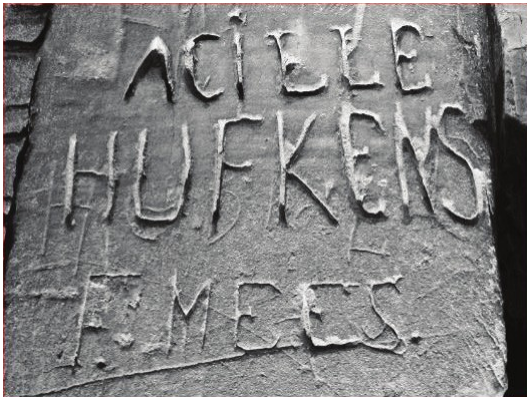 ACiLLE
HUFKENS
F. MEES.